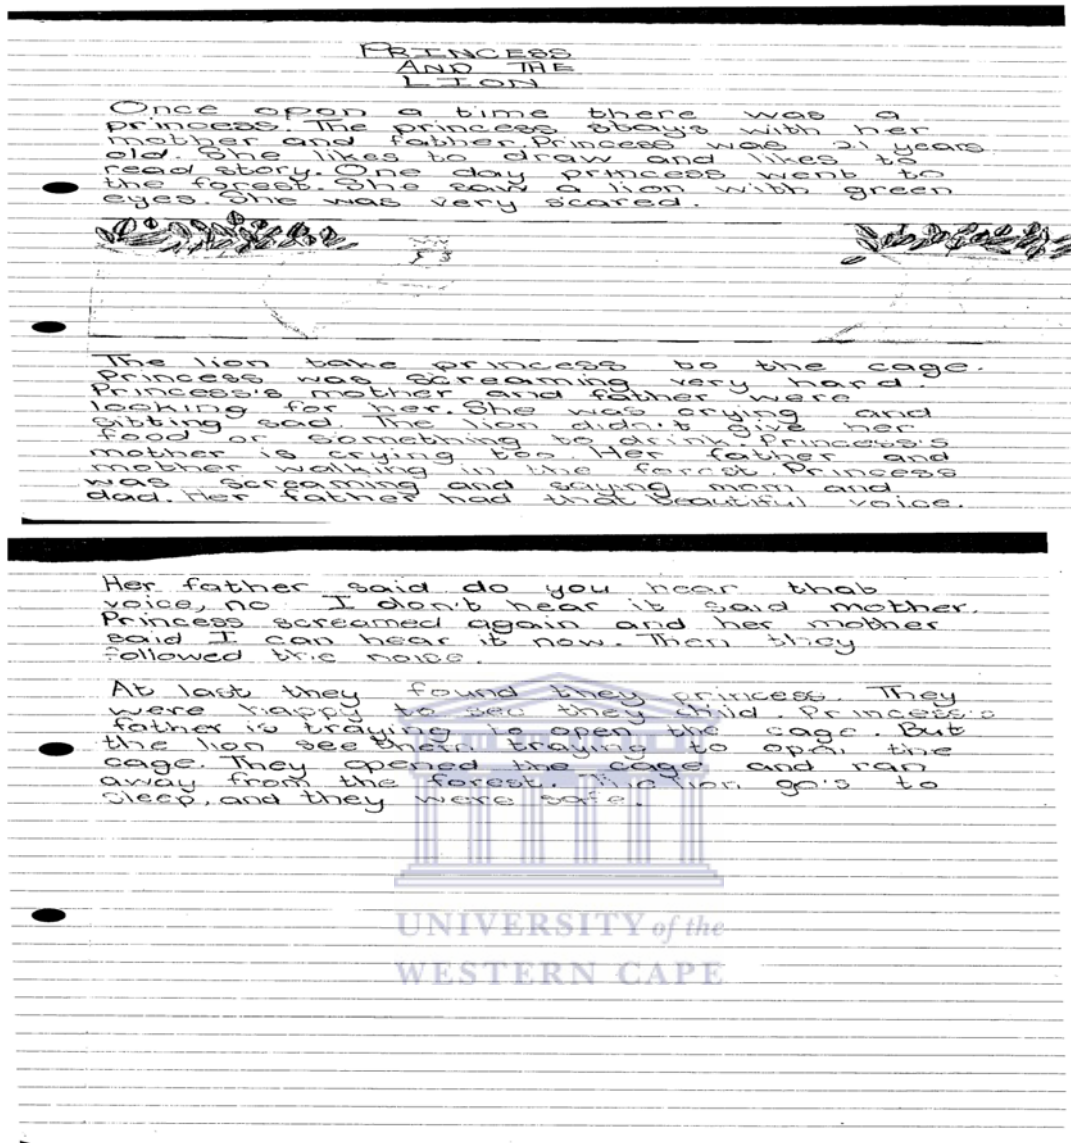 PRINCESS
AND THE
LION
Once opon a time there was a
princess. The princess stay's with her
mother and father. Princess was 21 years
old. She likes to draw and likes to
read story. One day princess went to
the forest. She saw a lion with green
eyes. She was very scared.
The lion take princess to the cage.
Princess was screaming very hard.
Princess's mother and father were
looking for her. She was crying and
sitting sad. The lion didn't give her
food or something to drink. Princess's
mother is crying too. Her father and
mother walking in the forest. Princess
was screaming and saying mom and
dad. Her father had that beautiful voice.
Her father said do you hear that
voice, no I don't hear it said mother.
Princess screamed again and her mother
said I can hear it now. Then they
followed the noise.
At last they found they princess. They
were happy to see they child. Princess's
father is traying to open the cage. But
the lion see them traying to open the
cage. They opened the cage and ran
away from the forest. The lion go's to
sleep, and they were safe.
UNIVERSITY of the
WESTERN CAPE